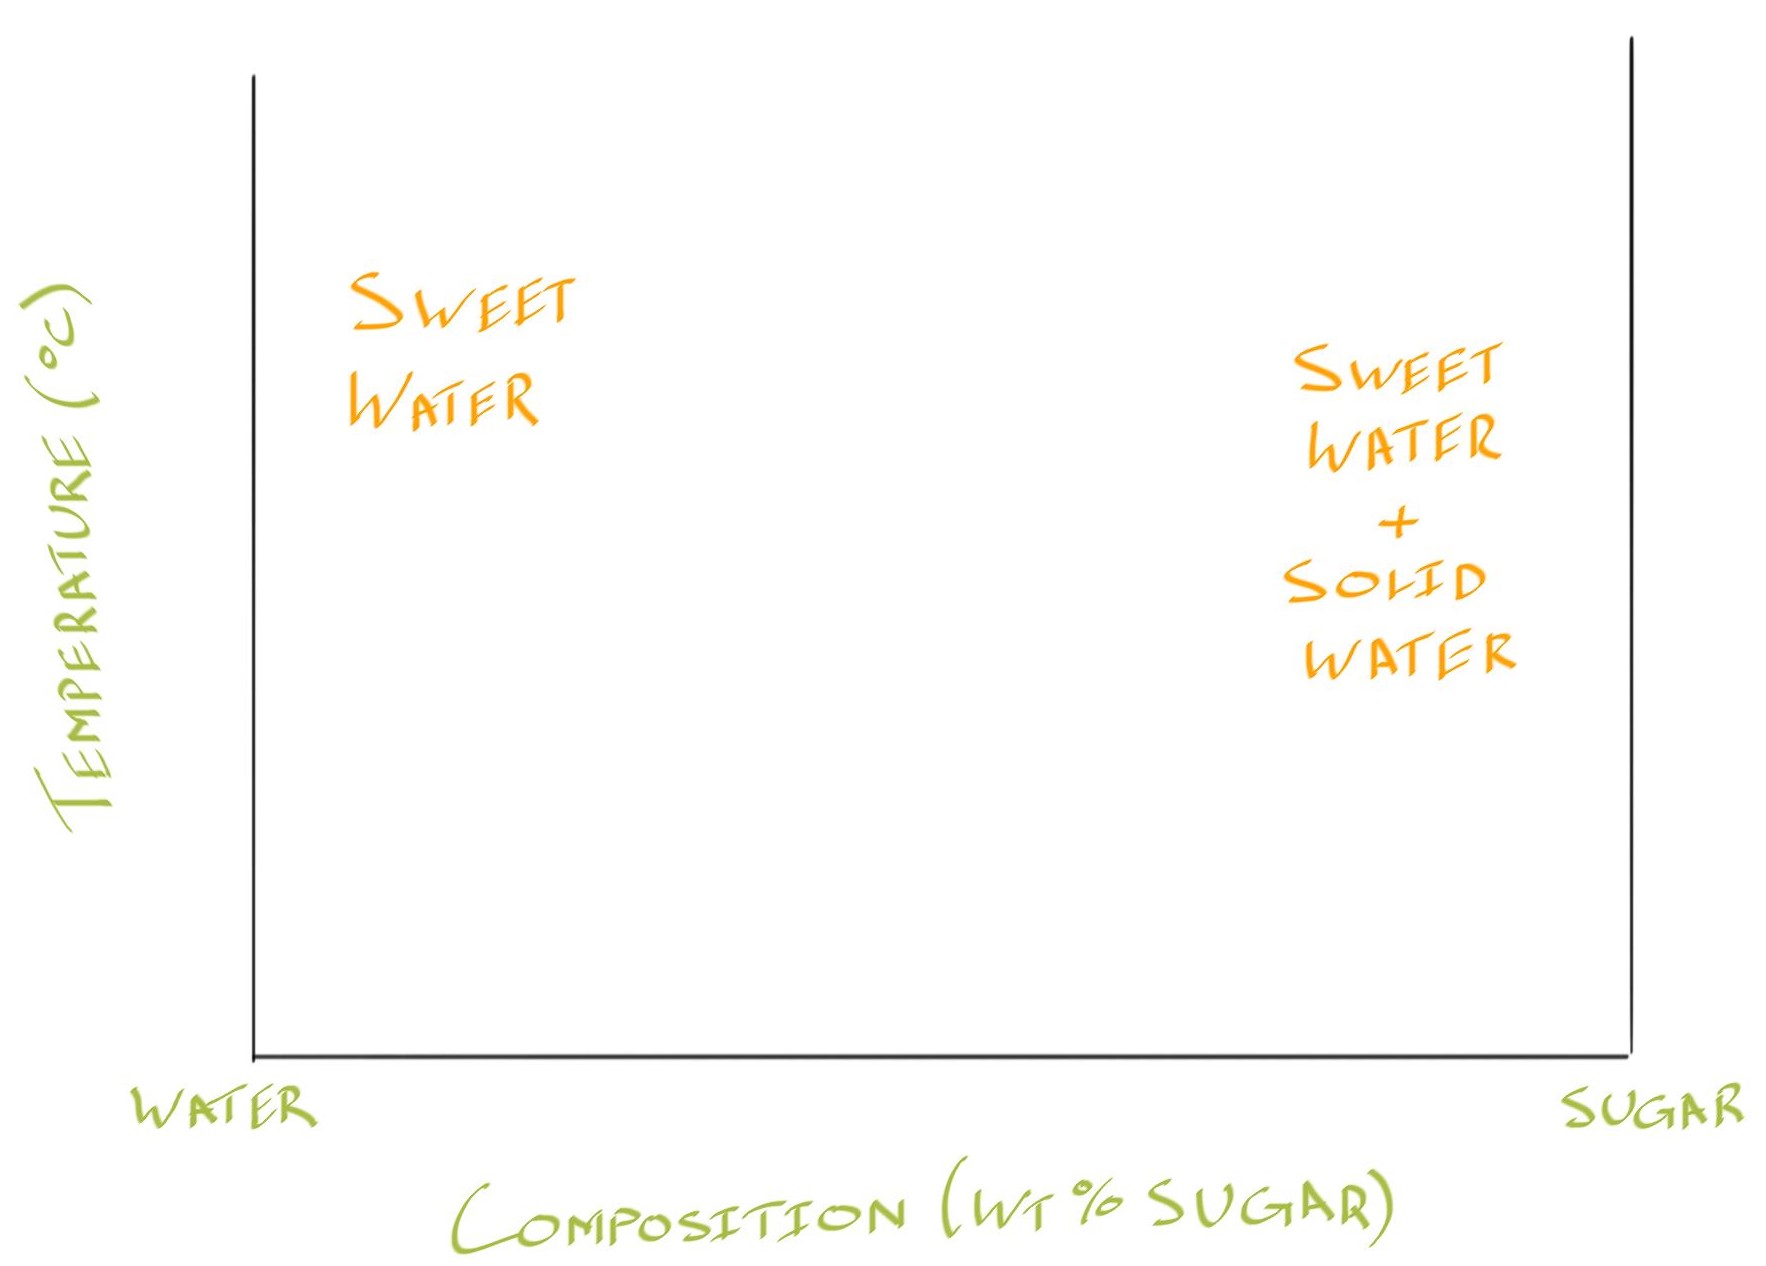 TEMPERATURE (°C)
SWEET
WATER
SWEET
WATER
+
SOLID
WATER
WATER
SUGAR
COMPOSITION (WT % SUGAR)